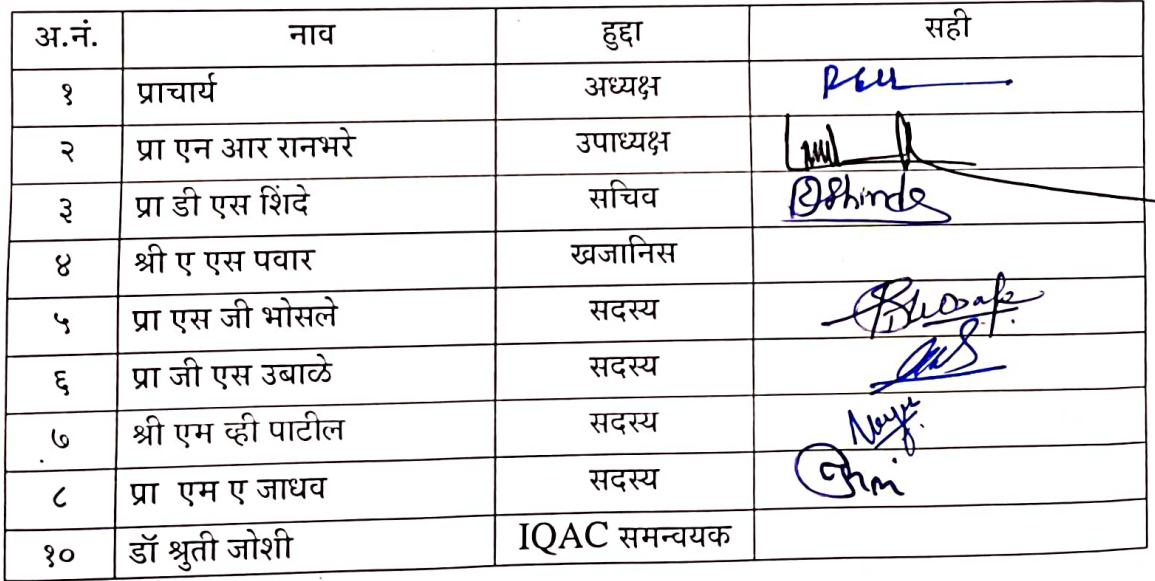 अ.नं. नाव हुद्दा सही
१ प्राचार्य अध्यक्ष
२ प्रा एन आर रानभरे उपाध्यक्ष
३ प्रा डी एस शिंदे सचिव DShinde
४ श्री ए एस पवार खजानिस
५ प्रा एस जी भोसले सदस्य
६ प्रा जी एस उबाळे सदस्य
७ श्री एम व्ही पाटील सदस्य
८ प्रा एम ए जाधव सदस्य
१० डॉ श्रुती जोशी IQAC समन्वयक